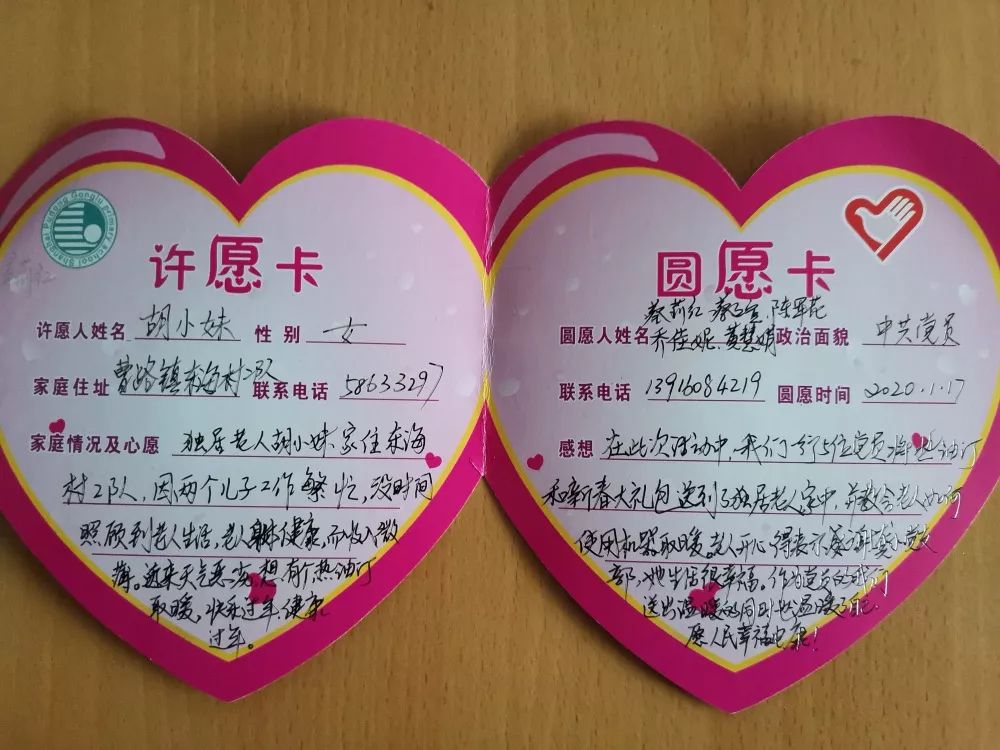 Shanghai Pudong Gonglu Primary School
许愿卡
许愿人姓名 胡小妹 性别 女
家庭住址 曹路镇东海村2队 联系电话 58633297
家庭情况及心愿 独居老人胡小妹家住东海
村2队,因两个儿子工作繁忙,没时间
照顾到老人生活,老人身体健康,而收入微
薄。近来天气寒冷,想有个热油汀
取暖,快乐过年,健康
过年。
圆愿卡
蔡莉红 陈军花
圆愿人姓名 乔佳妮、黄慧娟 政治面貌 中共党员
联系电话 13916084219 圆愿时间 2020.1.17
感想 在此次活动中,我们一行5位党员将油汀
和新春大礼包送到了独居老人家中,并教会老人如何
使用机器取暖。老人开心得表示感谢党
她生活很幸福。作为党员的我们
送出温暖的同时也温暖了自己
愿人民幸福安康!